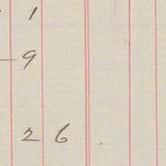 1
– 9
26